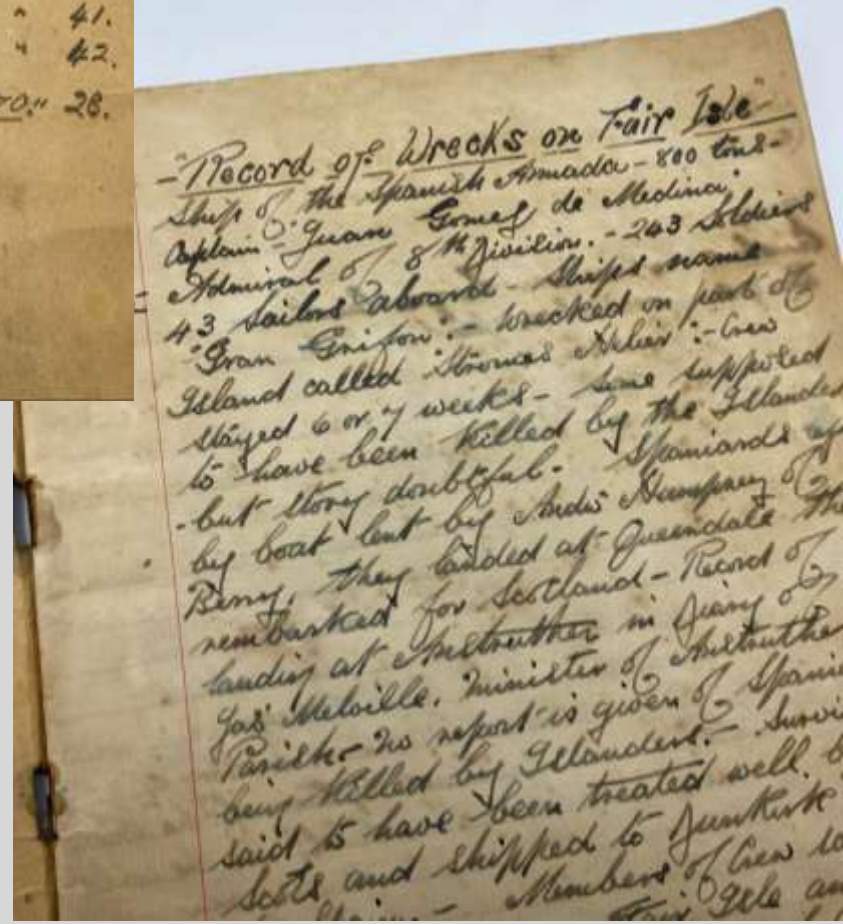 " 41.
" 42.
TO." 28.
-"Record of Wrecks on Fair Isle"-
Ship of the Spanish Armada - 800 tons -
Captain - Juan Gomez de Medina,
Admiral of 8th Division. - 243 Soldiers
43 Sailors aboard - Ships name
"Gran Grifon". - wrecked on part of
Island called "Stromes Helier" :- Crew
stayed 6 or 7 weeks - Some supposed
to have been killed by the Islander
- but story doubtful. Spaniards
by boat lent by Andw Humphrey of
Berry, they landed at Queendale the
rembarked for Scotland - Record of
landing at Anstruther in Diary of
Jas Melville. Minister of Anstruthe
Parish - no report is given of Spani
being killed by Islanders. - Survi
said to have been treated well. b
Scots and shipped to Dunkirk
Members of Crew
Fair Isle an